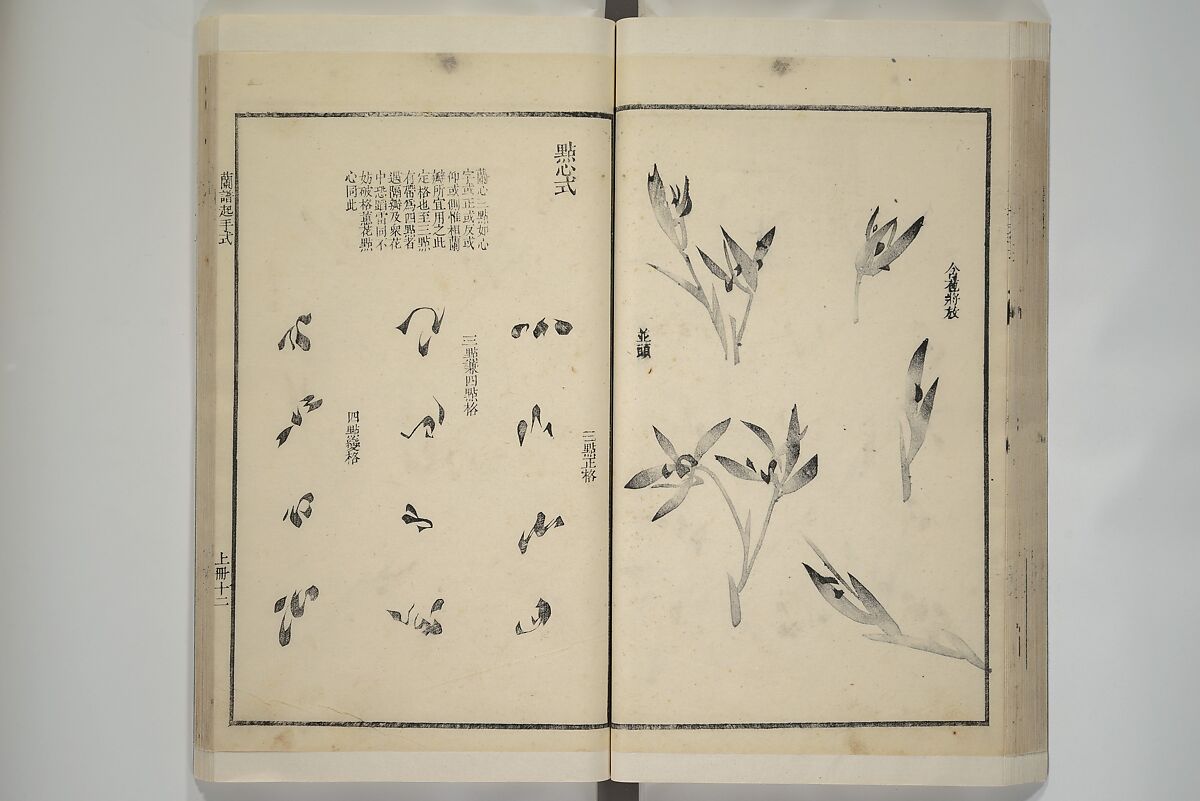 含苞將放
並頭
點心式
蘭心三點如心
字或正或反或
仰或側惟相蘭
瓣所宜用之此
定格也至三點
有帶爲四點者
遇隔瓣及衆花
中恐蹈雷同不
妨破格蕙花點
心同此
三點正格
三點兼四點格
四點變格
蘭譜起手式
上冊十二